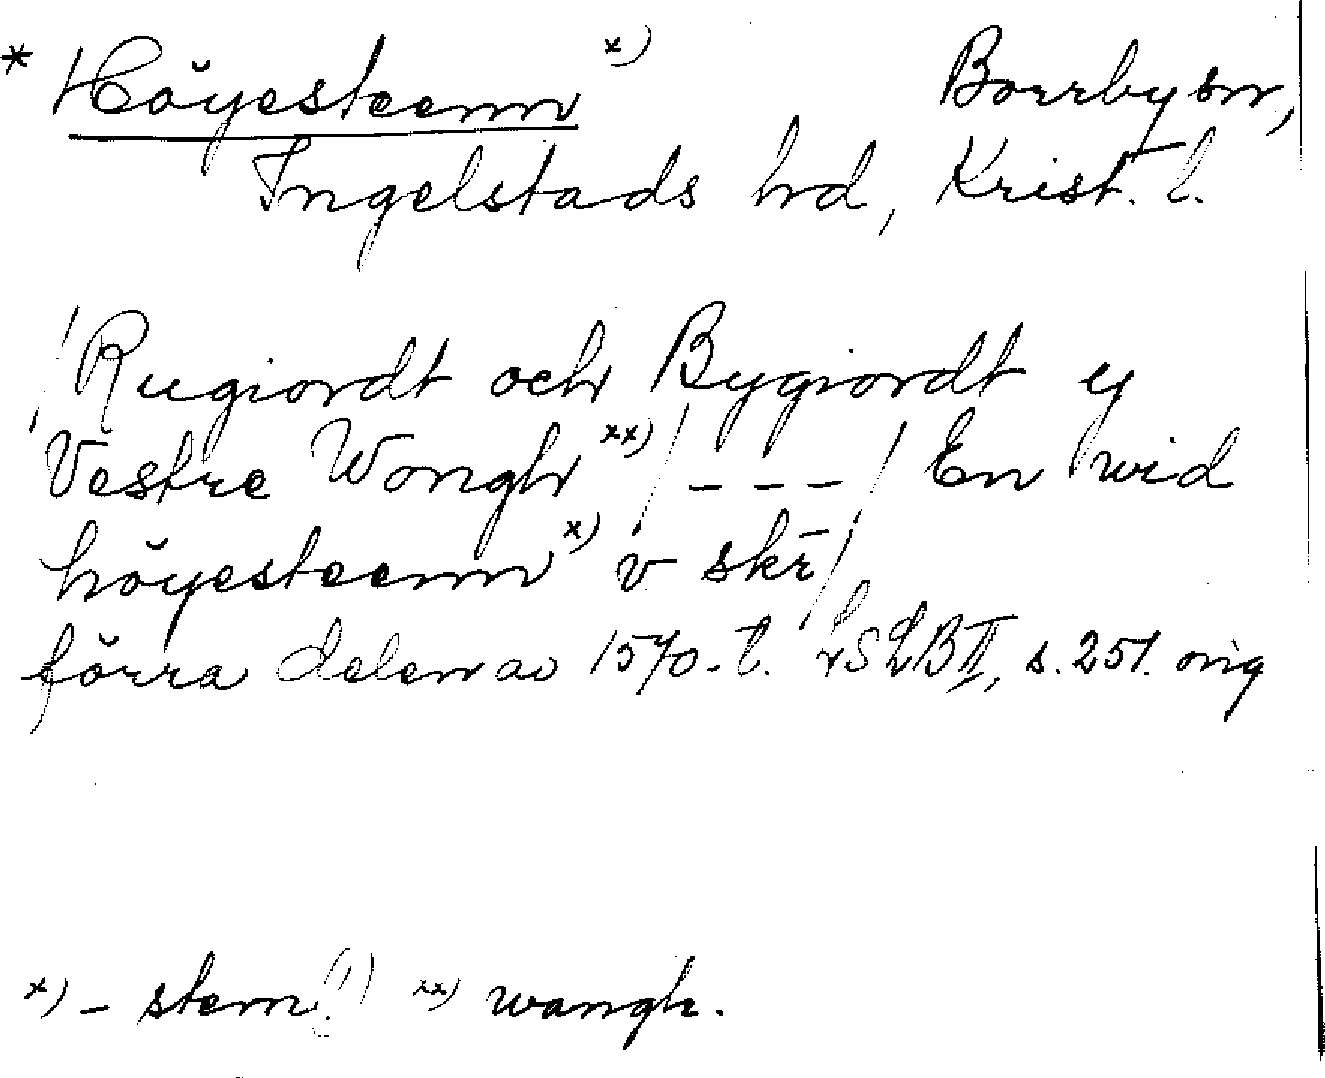 * Höyesteenn x) Borrby sn,
Ingelstads hd, Krist. l.
/Rugiordt och Bygiordt y
Vestre Wongh xx) / - - - / En wid
höyesteenn x) v skr̄ /
förra delen av 1570-t. LSLB II, s. 251. orig
x) - stern (!) xx) wangh.